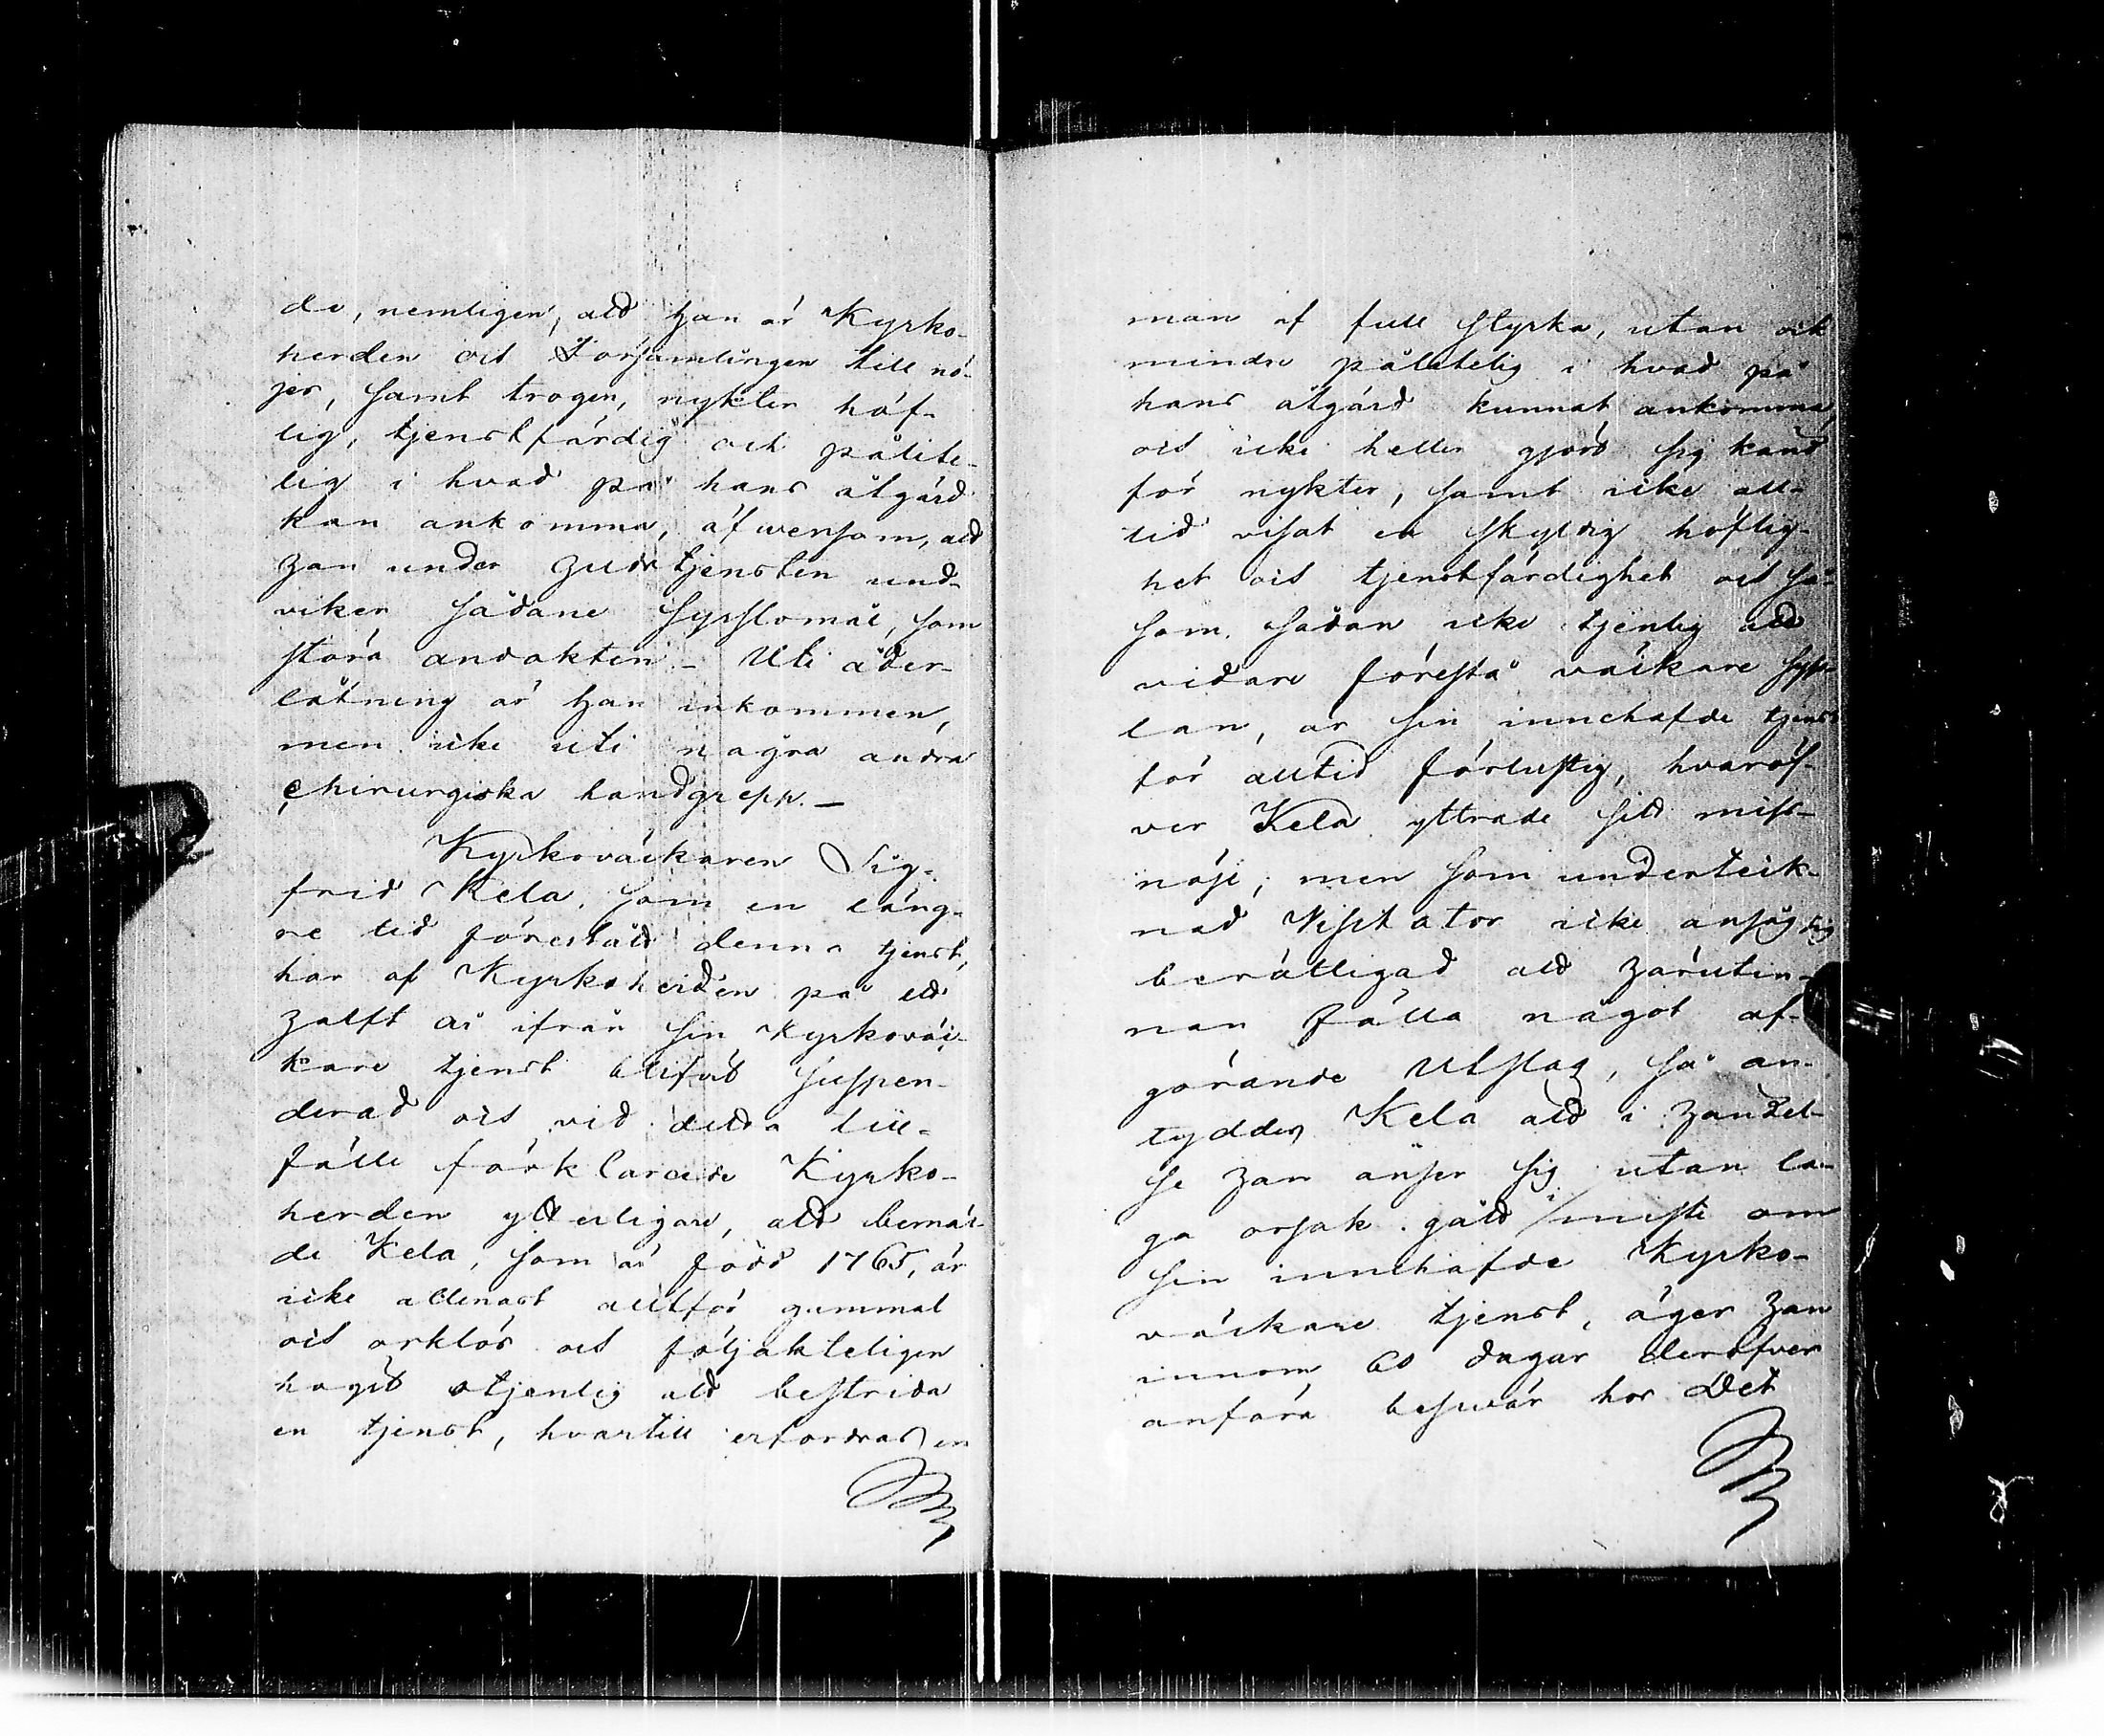 de, nemligen, att han är Kyrko-
herden och Församlingen till nö-
jes, samt trogen, nykter höf-
lig, tjenstfärdig och pålite-
lig i hvad på hans åtgärd
kan ankomma, äfwensom, att
han under Gudstjensten und-
viker sådane sysslomål, som
störa andakten. – Uti åder-
låtning är han inkommen,
men icke uti några andra
Chirurgiska handgrepp. –
Kyrkoväckaren Sig-
frid Kela, som en läng-
re tid förestått denna tjenst,
har af Kyrkoherden på ett
halft år ifrån sin Kyrkoväc-
kare tjenst blifvit suspen-
derad och vid detta till-
fälle förklarade Kyrko-
herden ytterligare, att bemäl-
de Kela, som är född 1765, är
icke allenast alltför gammal
och orklös och följakteligen
högst otjenlig att bestrida
en tjenst, hvartill erfordras en
man af full styrka, utan ock
mindre pålitelig i hvad på
hans åtgärd kunnat ankomma,
och icke heller gjort sig känd
för nykter, samt icke all-
tid visat en skyldig höflig-
het och tjenstfärdighet och så-
som sådan icke tjenlig att
vidare förestå väckare syss-
lan, är sin innehafde tjenst
för alltid förlustig, hvaröf-
ver Kela yttrade sitt miss-
nöje; men som underteck-
nad Visitator icke ansåg sig
berättigad att härutin-
nan fälla något af-
görande Utslag, så an-
tyddes Kela att i händel-
se han anser sig utan la-
ga orsak gått i miste om
sin innehafde Kyrko-
väckare tjenst, äger han
innom 60 dagar deröfver
anföra beswär hos Det